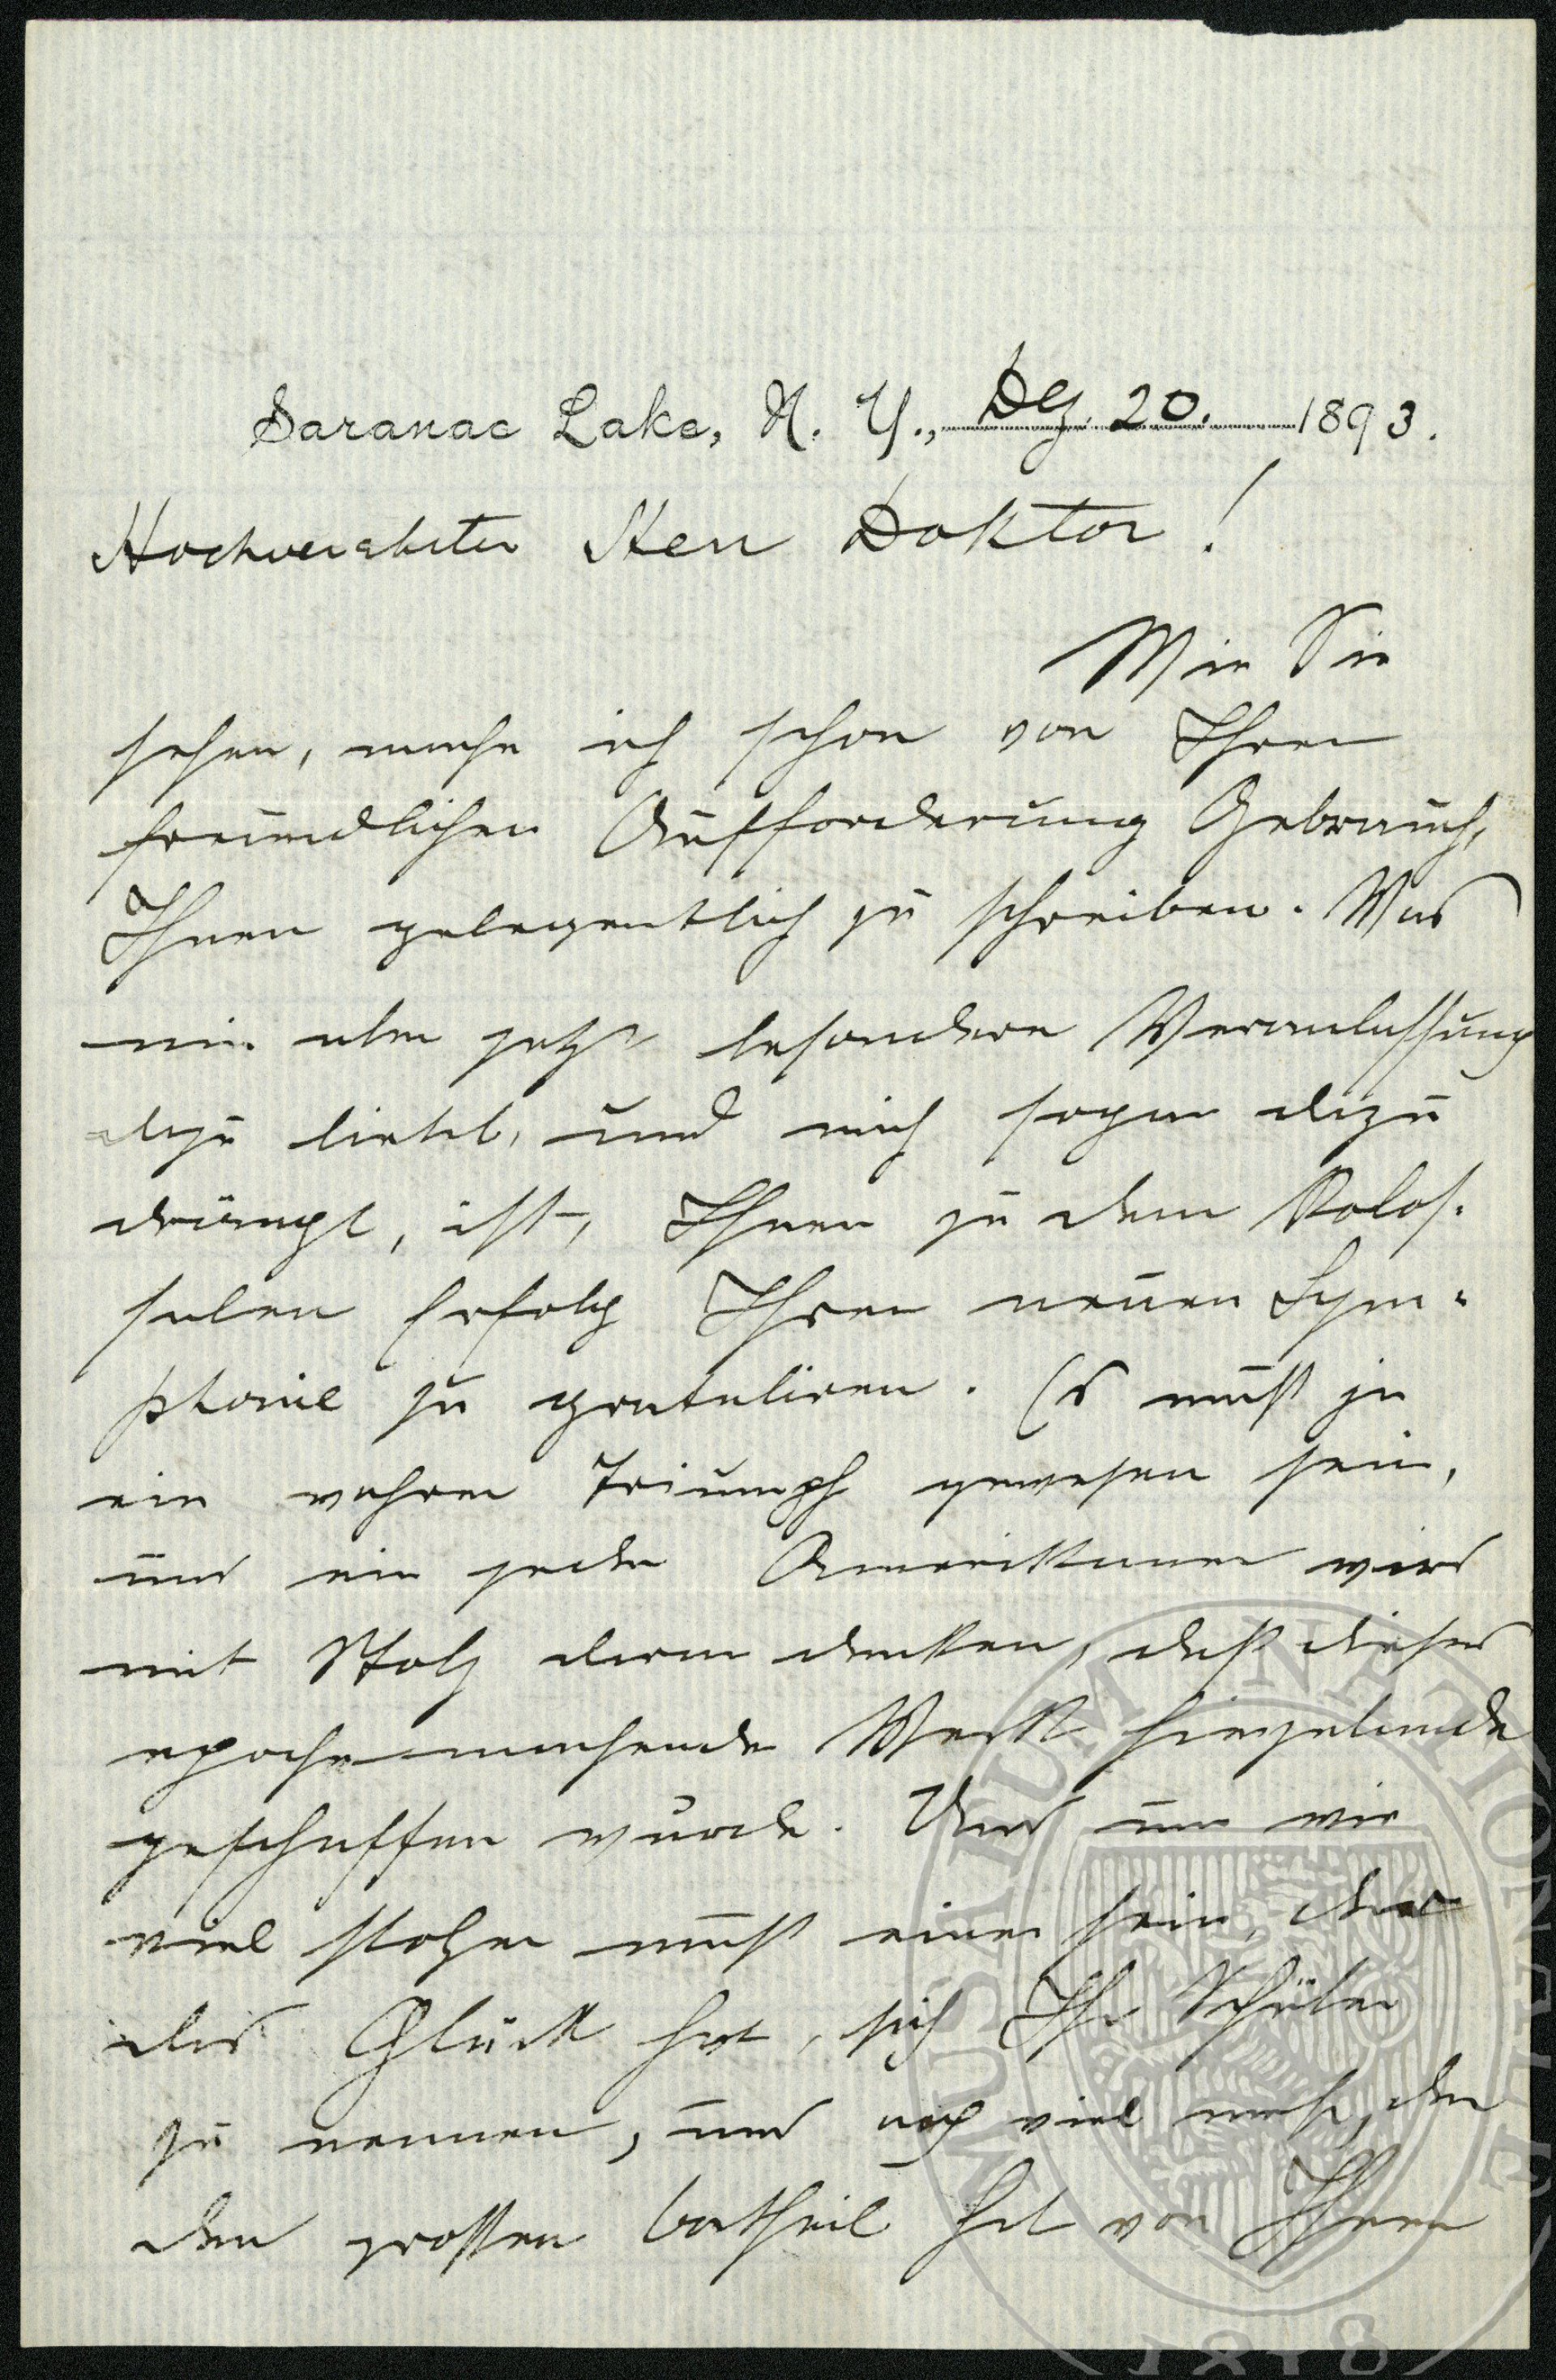 Saranac Lake, N. Y., Dez. 20. 1893.
Hochverehrter Herr Doktor!
Wie Sie
sehen, mache ich schon von Ihrer
freundlichen Aufforderung Gebrauch,
Ihnen gelegentlich zu schreiben. Was
mir aber jetzt besondere Veranlassung
dazu bietet, und mich sogar dazu
drängt, ist, Ihnen zu dem kolos-
salen Erfolg Ihrer neuen Sym-
phonie zu gratuliren. Es muß ja
ein wahrer Triumph gewesen sein,
und ein jeder Amerikaner wird
mit Stolz daran denken, daß dieses
epochemachende Werk hierzulande
geschaffen wurde. Und um wie
viel stolzer muß einer sein, der
das Glück hat, sich Ihr Schüler
zu nennen, und noch viel mehr, der
den großen Vortheil hat von Ihnen
MUSAEUM NATIONALE
1818